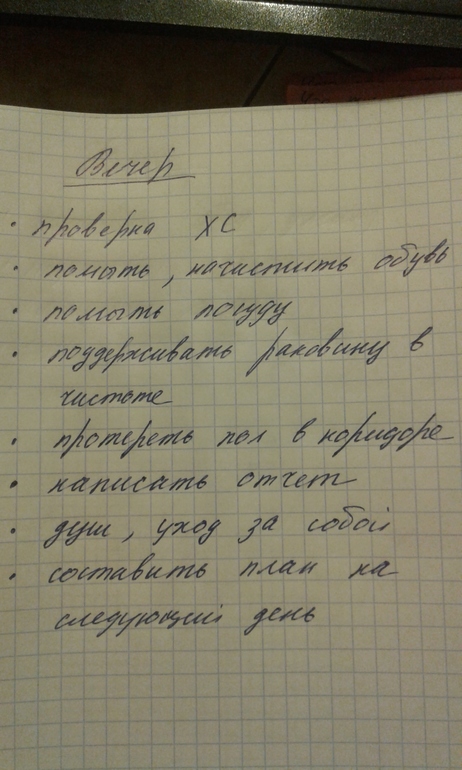 Вечер
• проверка ХС
• помыть, начистить обувь
• помыть посуду
• поддерживать раковину в
чистоте
• протереть пол в коридоре
• написать отчет
• душ, уход за собой
• составить план на
следующий день